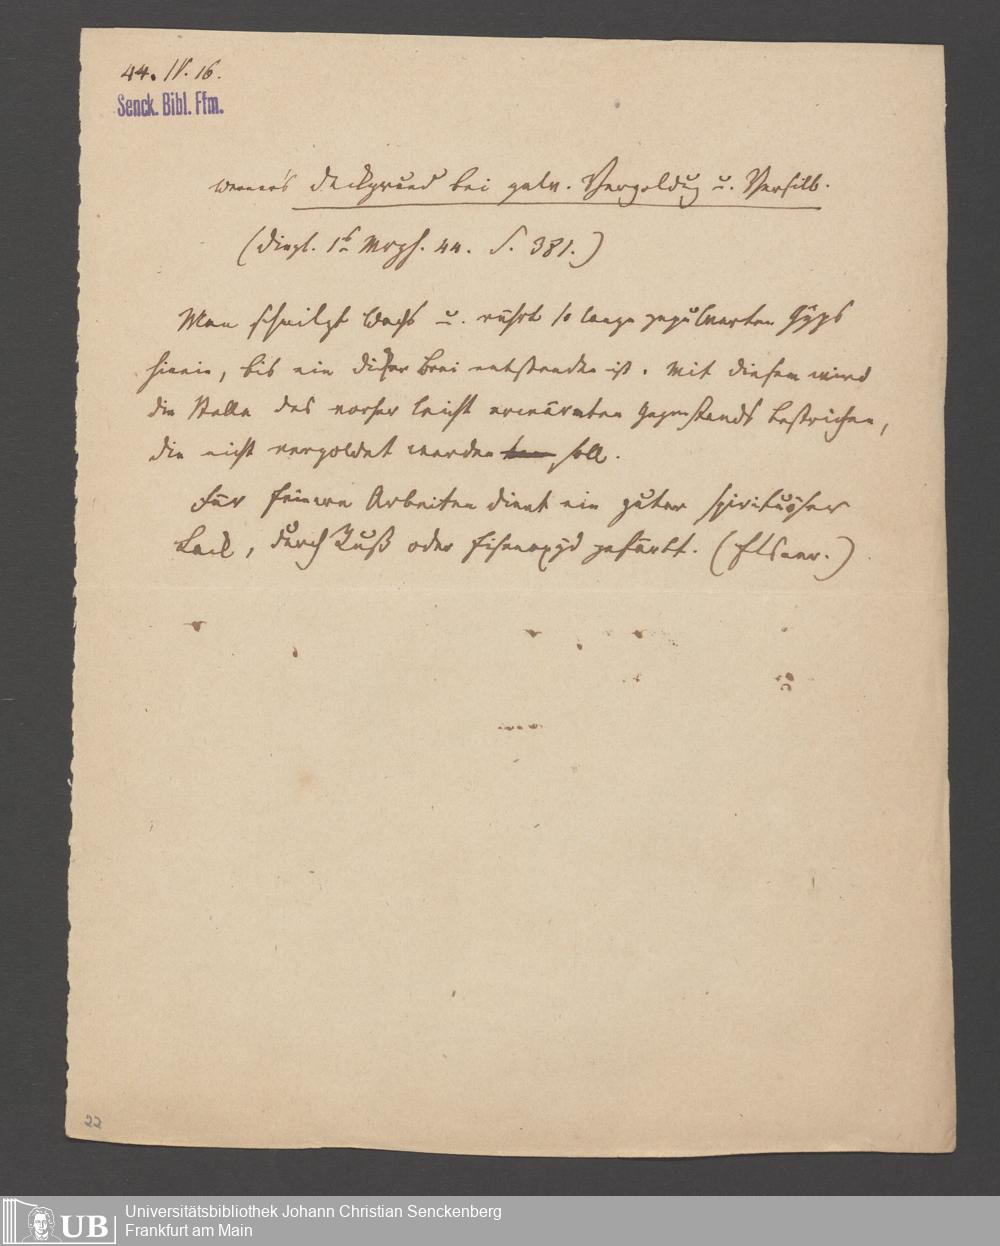 44. IV. 16.
Senck. Bibl. Ffm.
Werner's Deckgrund bei galv. Vergoldug u. Versilb.
(Dingl. 1s Mrzh. 44. S. 381.)
Man schmilzt Wachs u. rührt so lange gepulverten Gÿps
hinein, bis ein dicker Brei entstanden ist. Mit diesem wird
die Stelle des vorher leicht erwärmten Gegenstands bestrichen,
die nicht vergoldet werden soll.
Für feinere Arbeiten dient ein guter spirituöser
Lack, durch Ruß oder Eisenoxÿd gefärbt. (Elsner.)
22
UB
Universitätsbibliothek Johann Christian Senckenberg
Frankfurt am Main